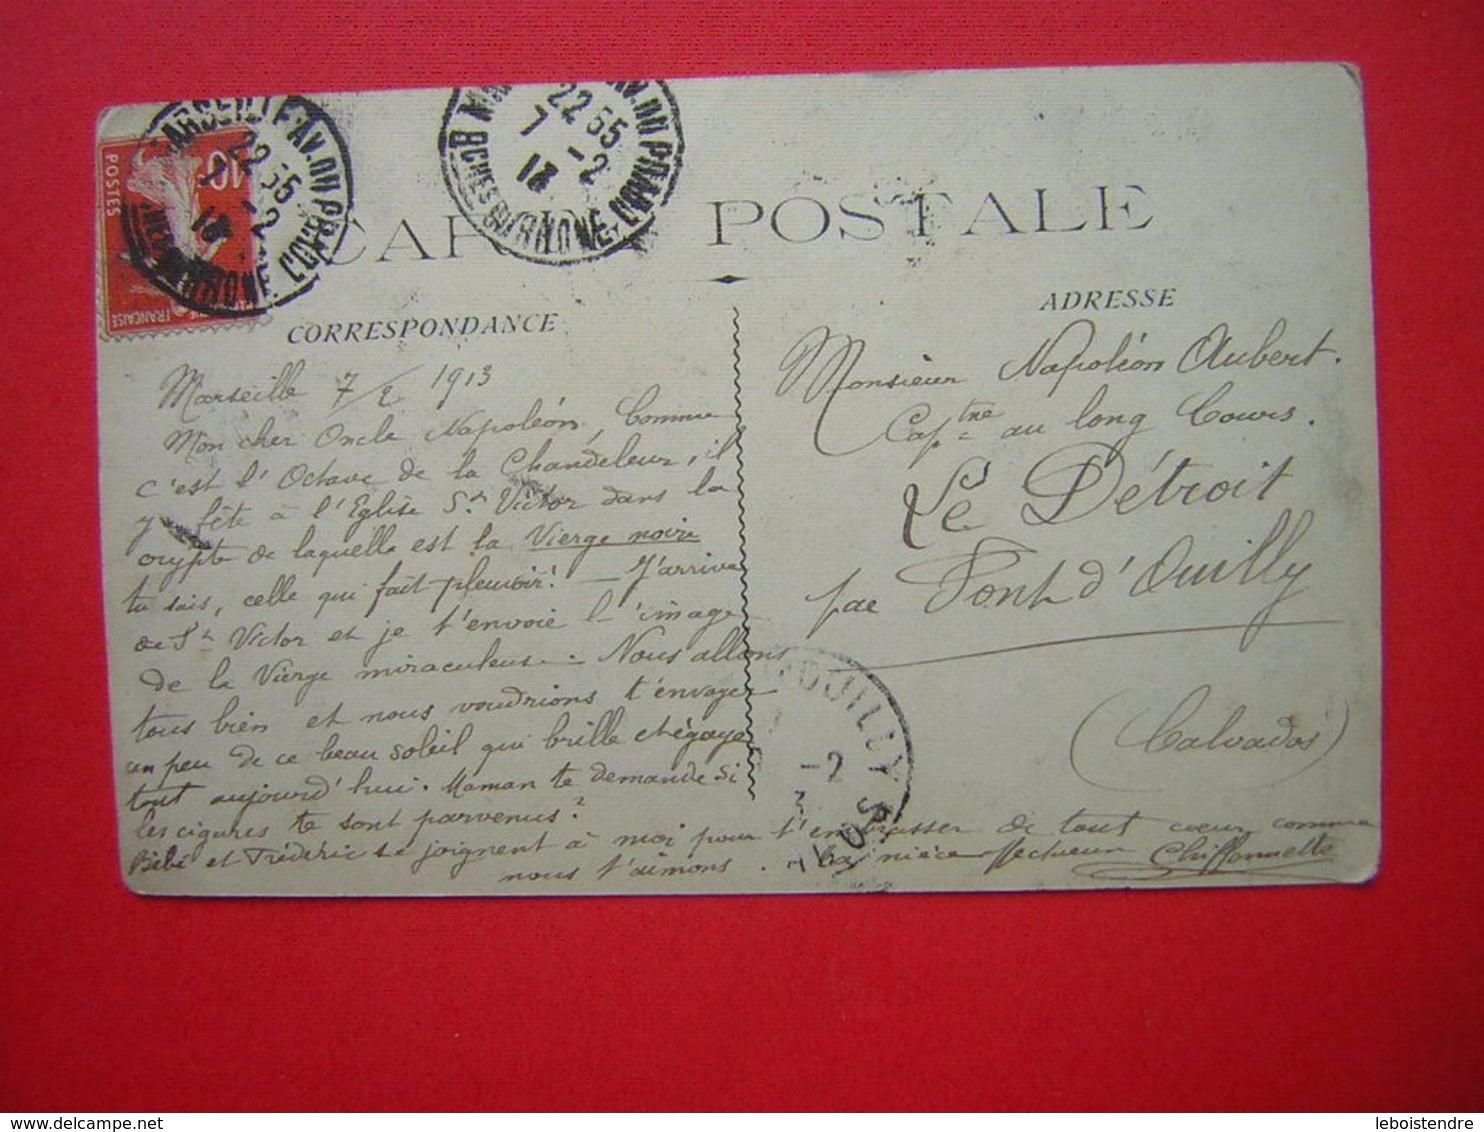 MARSEILLE AV. DU PRADO
22 55
7 -2
13
BCHES DU RHONE
AV. DU PRADO
22 55
7 -2
13
BCHES DU RHONE
POSTES
10
FRANÇAISE
CARTE POSTALE
CORRESPONDANCE
Marseille 7/2 1913
Mon cher Oncle Napoléon, Comme
c'est l'Octave de la Chandeleur, il
y fête à l'Eglise St Victor dans la
crypte de laquelle est la Vierge noire
tu sais, celle qui fait pleuvoir! — J'arrive
de St Victor et je t'envoie l'image
de la Vierge miraculeuse. Nous allons
tous bien et nous voudrions t'envoyer
un peu de ce beau soleil qui brille et égaye
tout aujourd'hui. Maman te demande si
les cigares te sont parvenus?
Bébé et Frédéric se joignent à moi pour t'embrasser de tout coeur comme
nous t'aimons. Ta nièce Chiffonnette
ADRESSE
Monsieur Napoléon Aubert.
Captne au long Cours.
Le Détroit
par Pont d'Ouilly
(Calvados)
OUILLY
-2
leboistendre